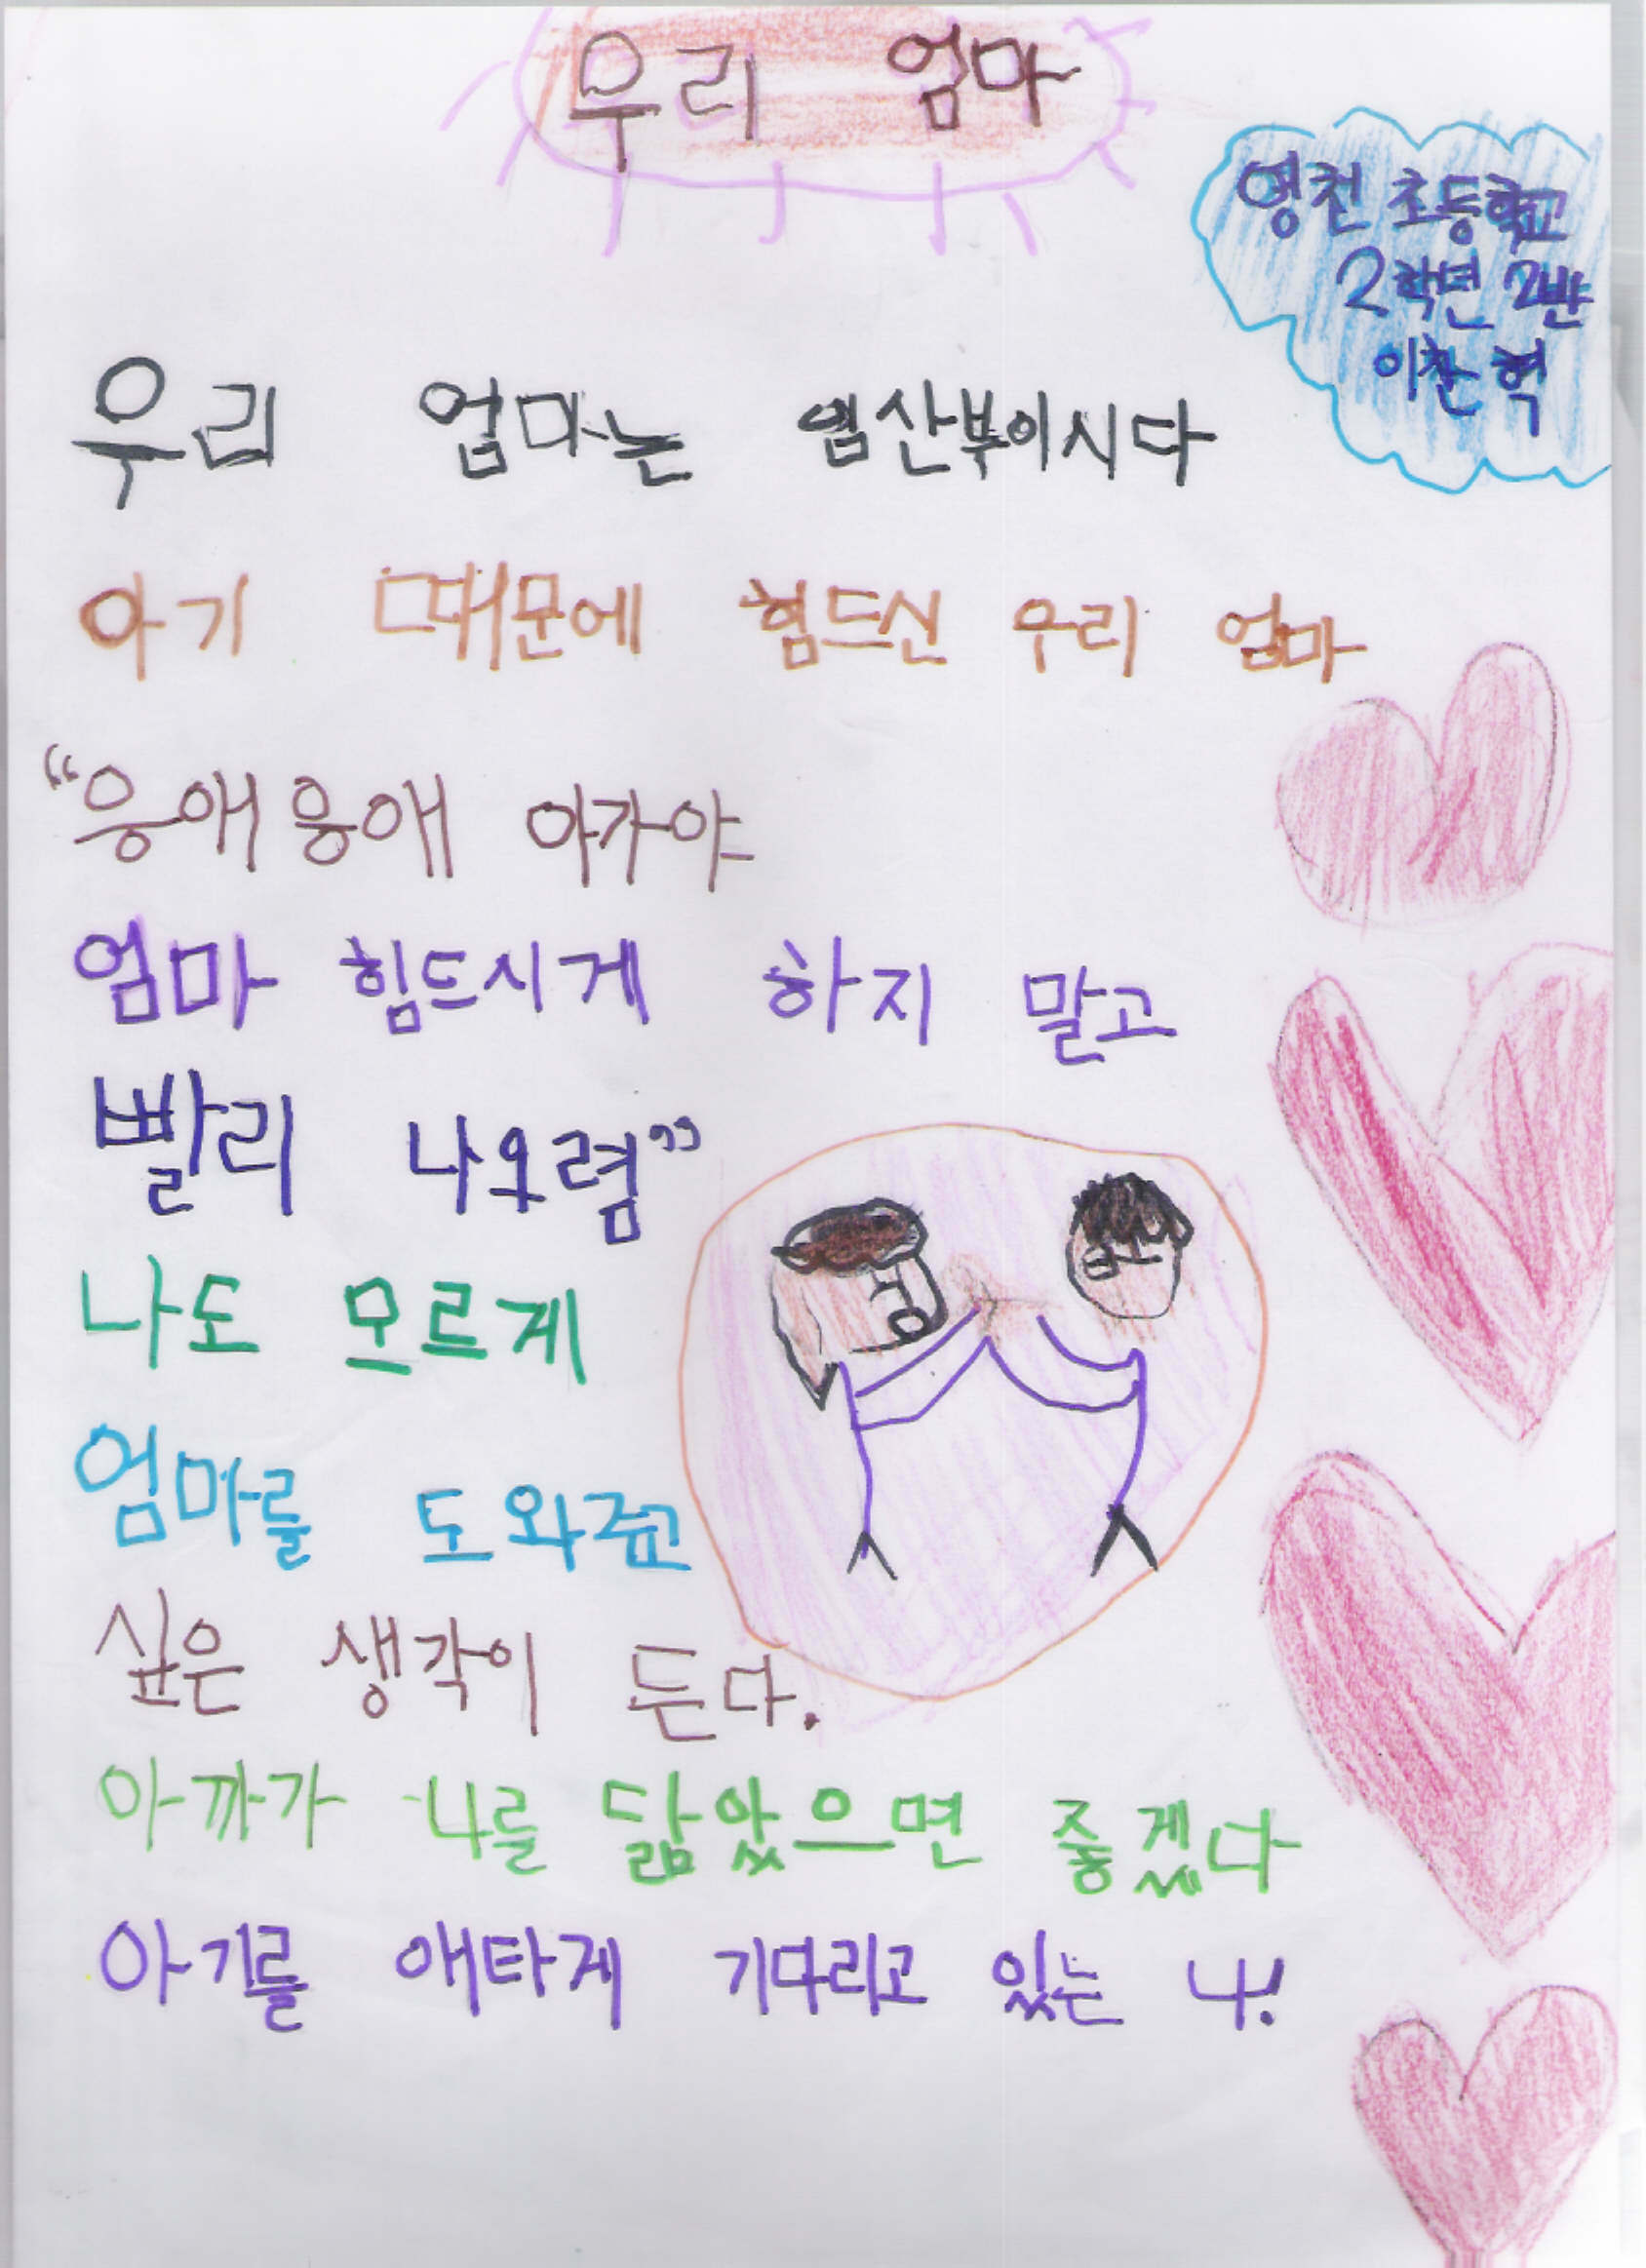 우리 엄마
영천 초등학교
2학년 2반
이찬혁
우리 엄마는 옘산부이시다
아기 때문에 힘드신 우리 엄마
“응애응애 아가야
엄마 힘드시게 하지 말고
빨리 나오렴”
나도 모르게
엄마를 도와주고
싶은 생각이 든다.
아까가 나를 닮았으면 좋겠다
아기를 애타게 기다리고 있는 나!